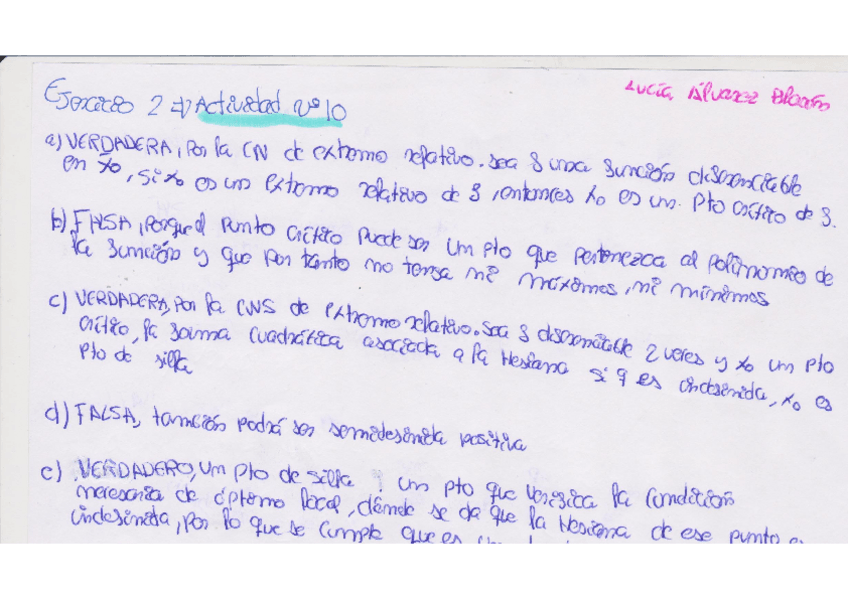 Lucía Álvarez
Ejercicio 2 => Actividad Nº 10
a) VERDADERA, Por la CN de extremo relativo. Sea f una función diferenciable
en x0, si x0 es un extremo relativo de f, entonces x0 es un pto crítico de f.
b) FALSA, porque el punto crítico puede ser un pto que pertenezca al polinomio de
la función y que por tanto no tenga ni máximos, ni mínimos
c) VERDADERA, por la CNS de extremo relativo. Sea f diferenciable 2 veces y x0 un pto
crítico, la forma cuadrática asociada a la Hessiana si q es indefinida, x0 es
pto de silla
d) FALSA, también podrá ser semidefinida positiva
e) VERDADERO, un pto de silla : un pto que verifica la condición
necesaria de óptimo local, dónde se da que la Hessiana de ese punto es
indefinida, por lo que se cumple que es un